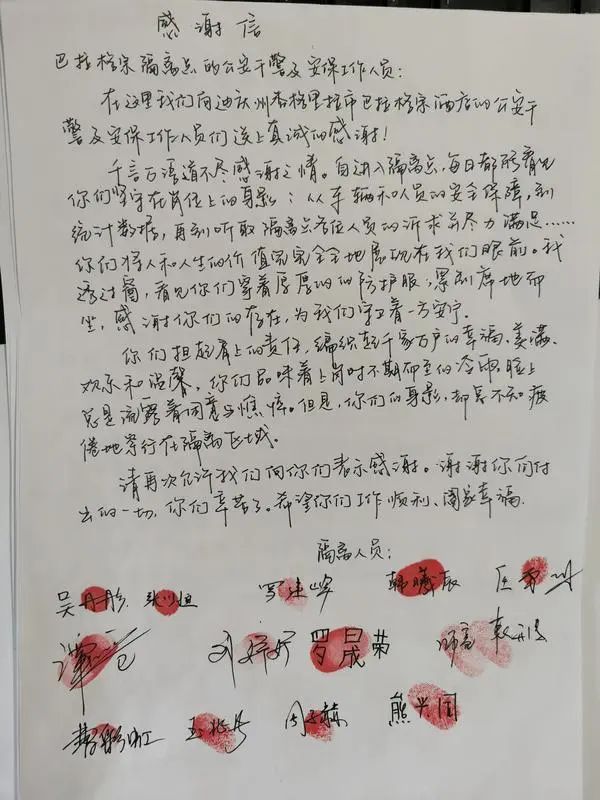 感谢信
巴拉格宗隔离点的公安干警及安保工作人员：
在这里我们向迪庆州香格里拉市巴拉格宗酒店的公安干
警及安保工作人员们送上真诚的感谢！
千言万语道不尽感谢之情。自进入隔离点，每日都能看见
你们坚守在岗位上的身影：从车辆和人员的安全保障，到
统计数据，再到听取隔离点各位人员的诉求并尽力满足……
你们将人和人生的价值完完全全地展现在我们眼前。我
透过窗，看见你们穿着厚厚的防护服，累到席地而
坐，感谢你们的存在，为我们守着一方安宁。
你们担起肩上的责任，编织起千家万户的幸福、美满、
欢乐和温馨，你们品味着上岗时不期而至的冷雨，脸上
总是流露着困意与憔悴。但是，你们的身影，却总不知疲
倦地穿行在隔离区域。
请再次允许我们向你们表示感谢。谢谢你们付
出的一切，你们辛苦了。希望你们工作顺利、阖家幸福。
隔离人员：
吴丹彤 张 恒 罗建 韩曦辰
刘 罗晟荣
熊兴国